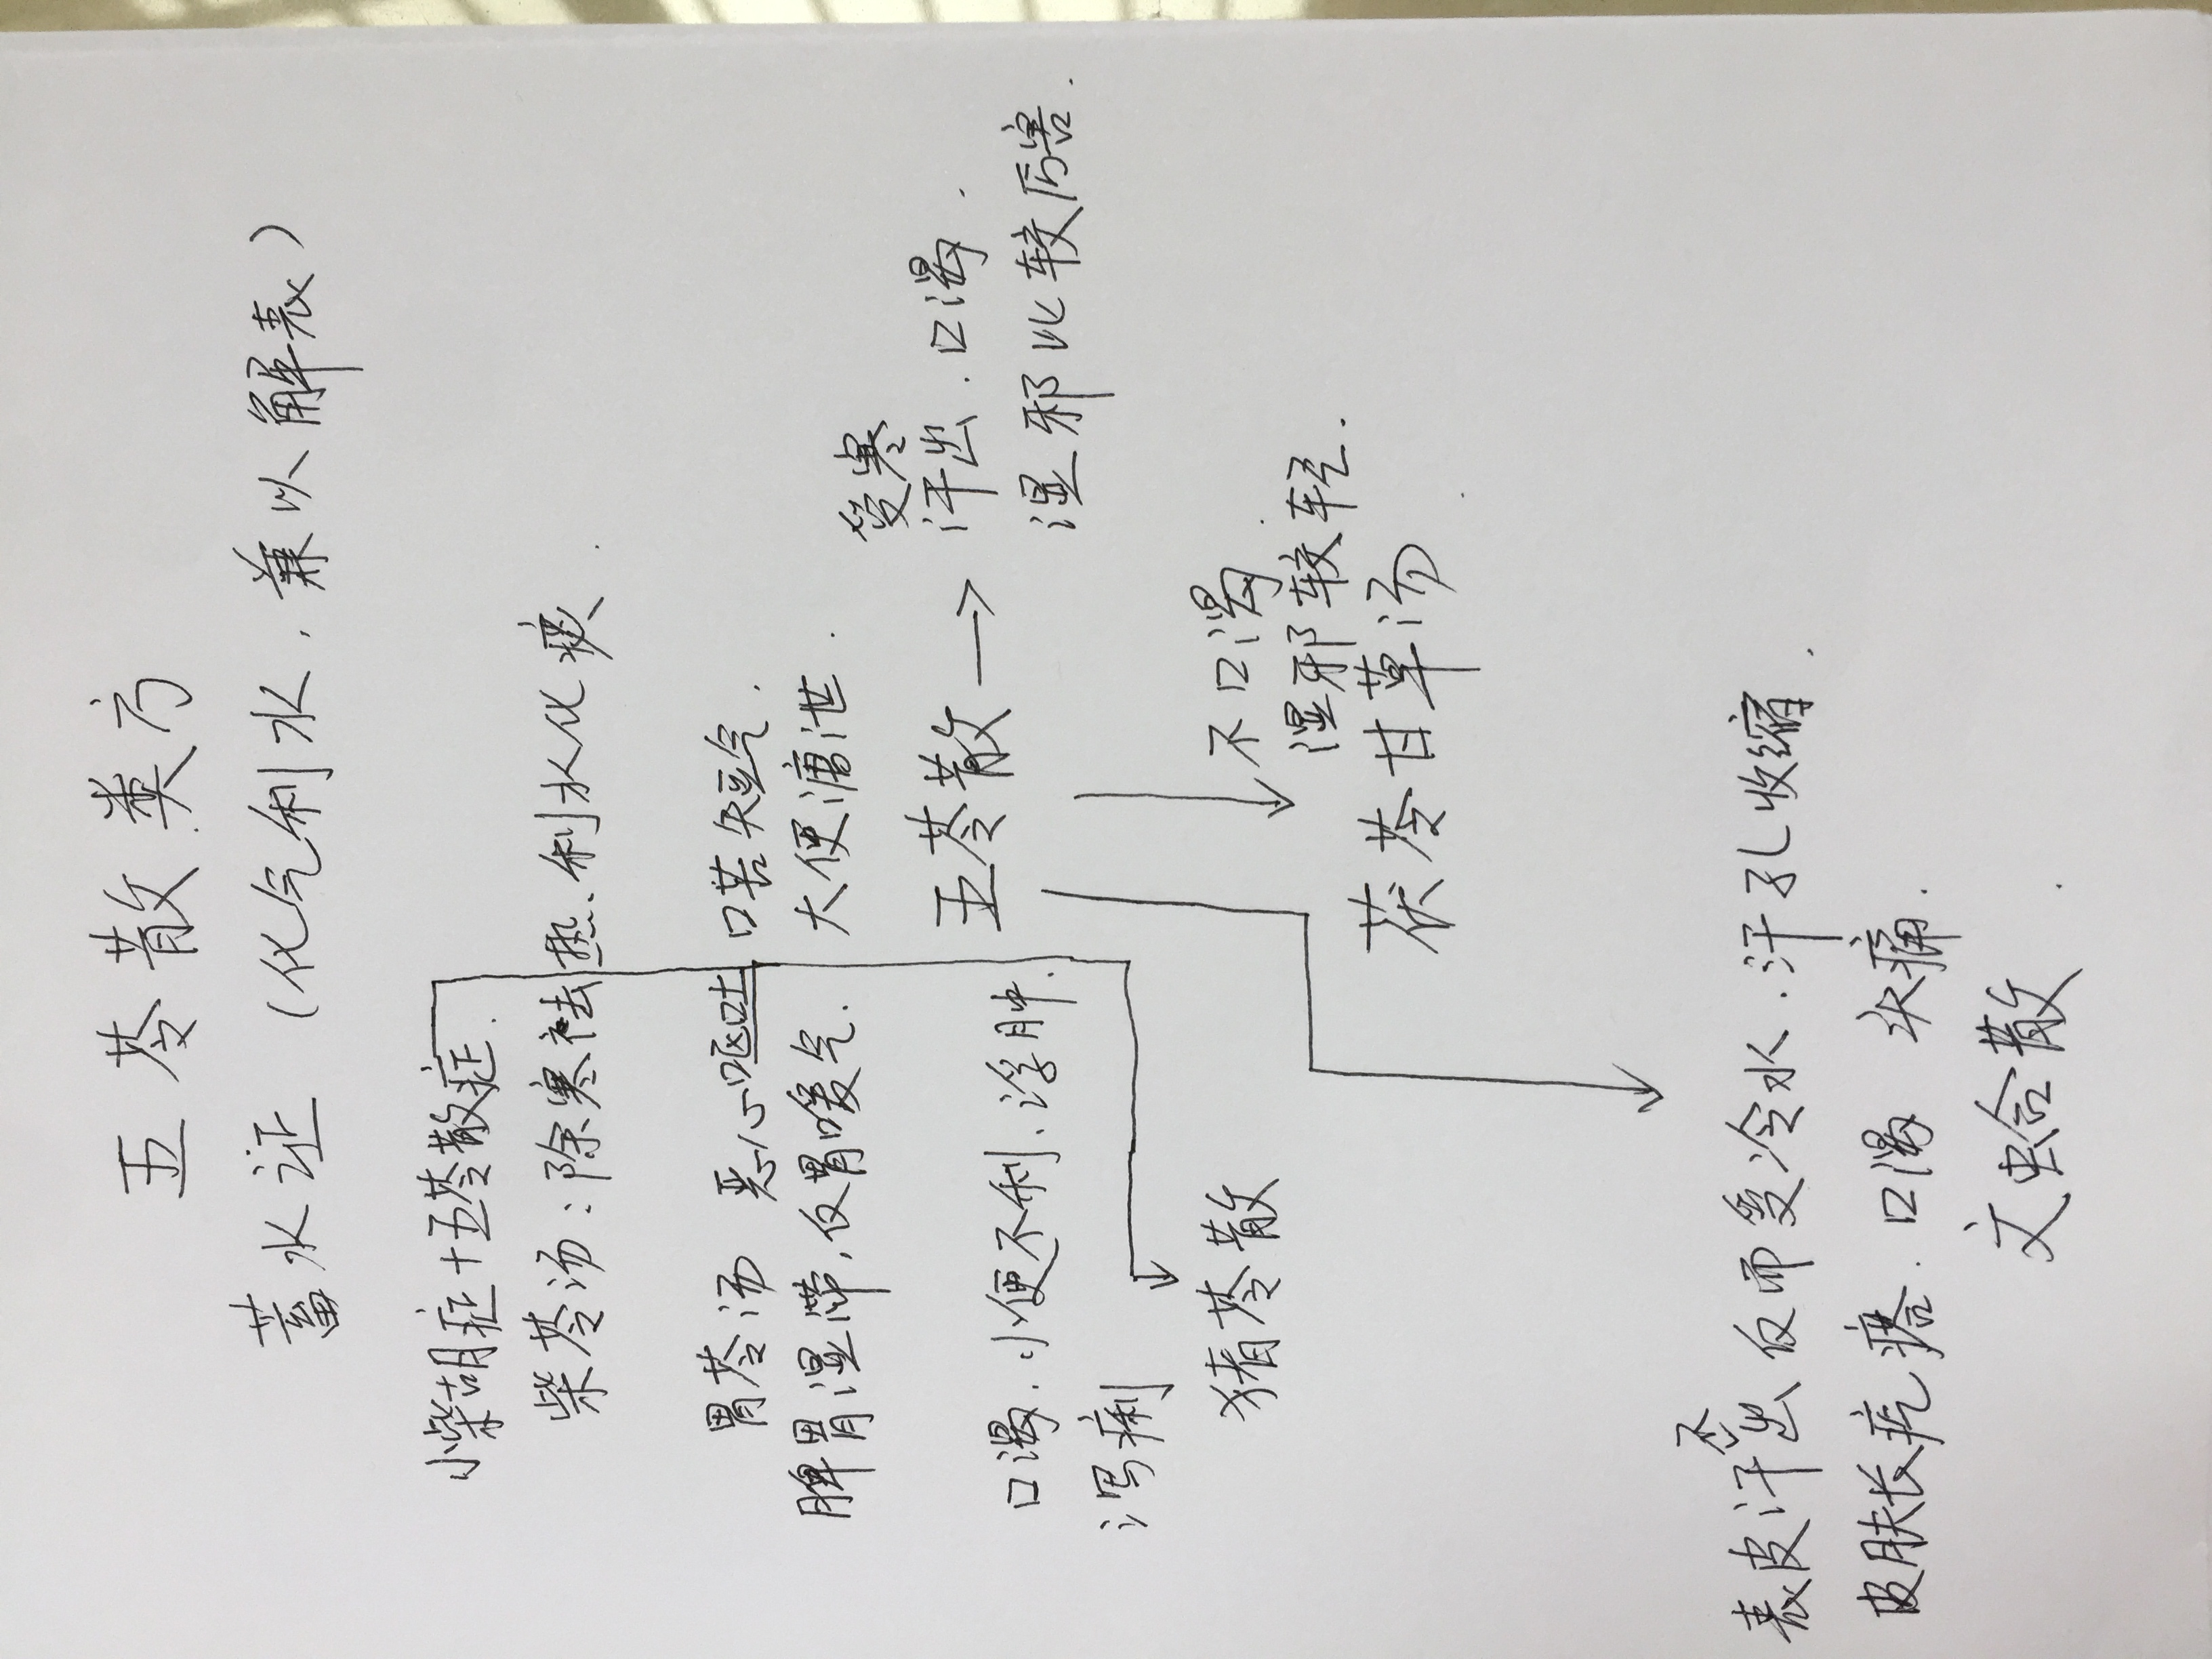 五苓散类方
蓄水证（化气利水．兼以解表）
小柴胡症+五苓散症．
柴苓汤：除寒祛热、利水化痰．
胃苓汤 恶心呕吐 口苦矢气．
脾胃湿滞，仅胃嗳气．大便溏泄．
五苓散→
受寒
汗出．口渴．
湿邪比较厉害．
口渴．小便不利．浮肿．
泻痢
猪苓散
不口渴．
湿邪较轻．
茯苓甘草汤
表皮汗不出 仅而受冷水．汗孔收缩．
皮肤长疙瘩．口渴 头痛．
文蛤散．